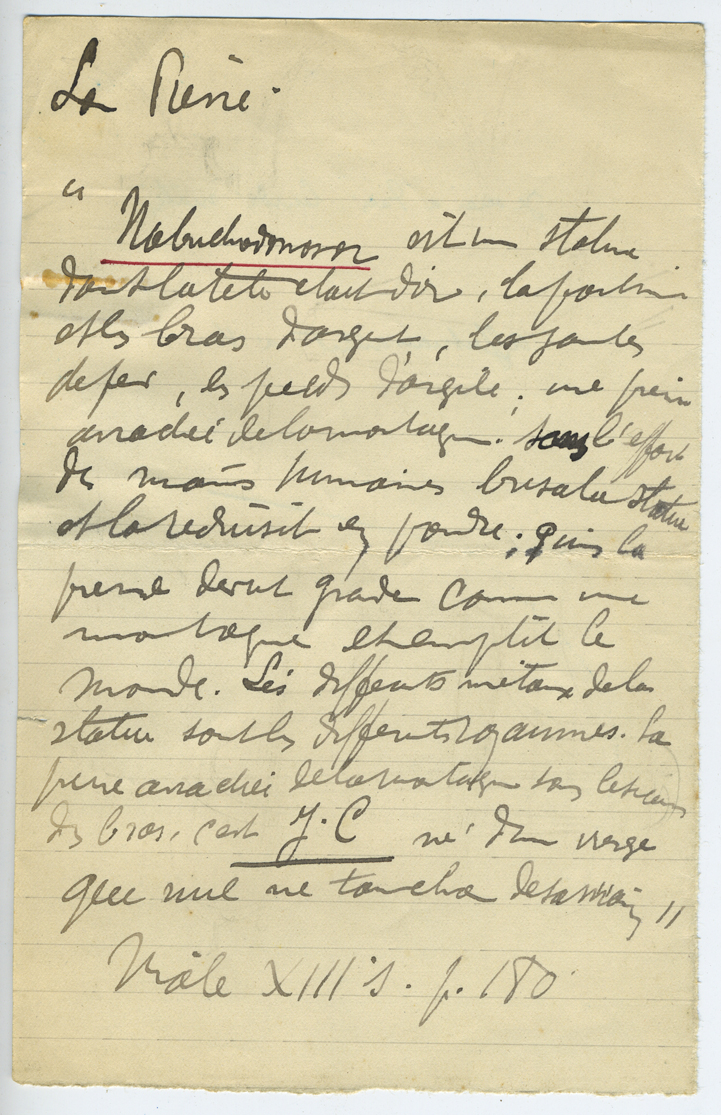 La Pierre.
"
Nabuchodonosor vit une statue
dont la tête était d'or, la poitrine
et les bras d'argent, les jambes
de fer, les pieds d'argile. une pierre
arrachée de la montagne. sans l'effort
des mains humaines brisa la statue
et la réduisit en poudre; puis la
pierre devint grande comme une
montagne et emplit le
monde. Les différents métaux de la
statue sont les différents royaumes. La
pierre arrachée de la montagne sans le secours
des bras, c'est J. C né d'une vierge
que nul ne toucha de sa main"
Mâle XIII s. p. 180